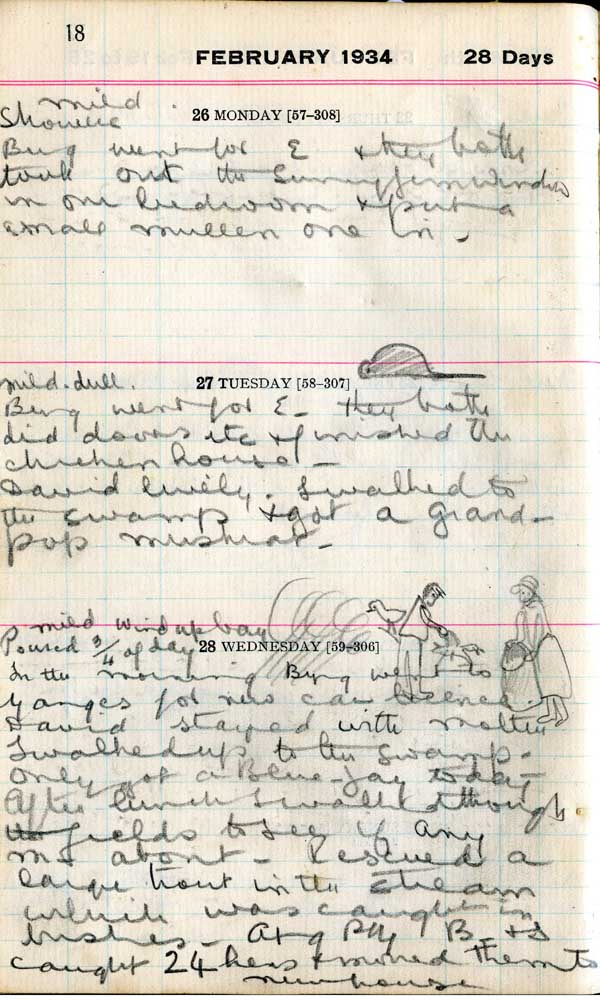 18
FEBRUARY 1934 28 Days
mild
Showers
26 MONDAY [57–308]
Bung went for E & they both
took out the Sunny Jim Window
in our bedroom & put a
small mullen one in -
mild. dull.
27 TUESDAY [58–307]
Bung went for E - they both
did doors etc & finished the
chicken house -
David lively. I walked to
the swamp & got a grand-
pop muskrat -
mild wind up bay
Poured 3/4 of day
28 WEDNESDAY [59–306]
In the morning Bung went to
for new car licence.
David stayed with
I walked up to the swamp -
Only got a Blue-Jay today -
After lunch I walked through
the fields to see if any
about - Rescued a
large trout in the stream
which was caught in
bushes - At 9 PM B &
caught 24 hens & moved them to
new house